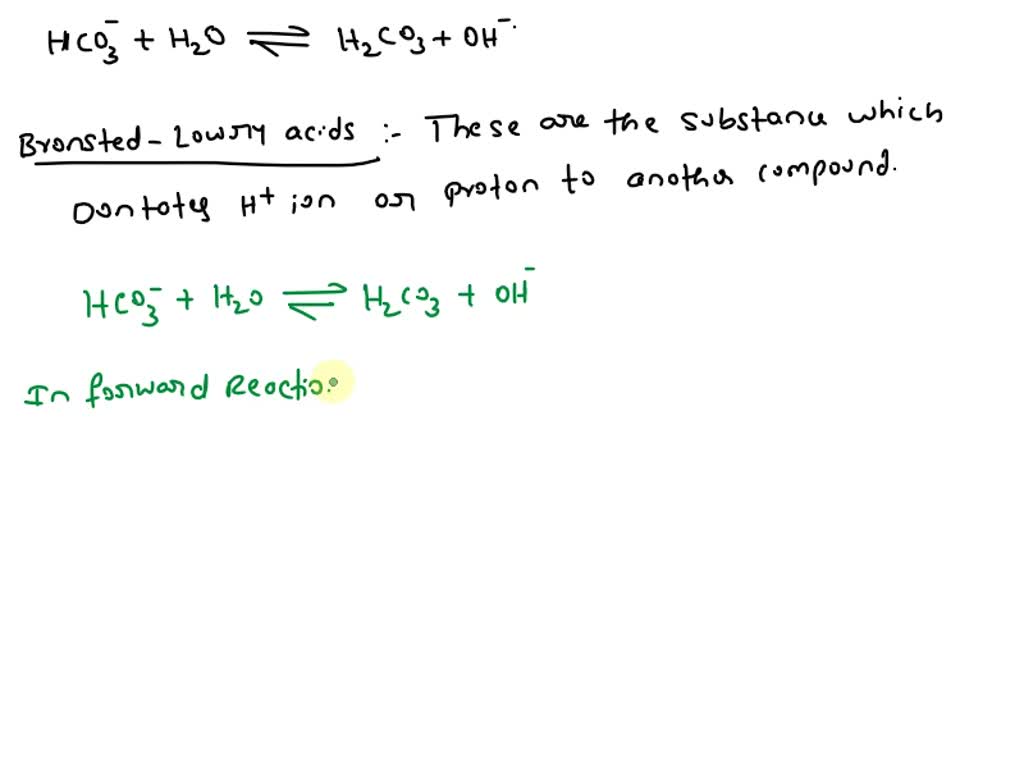 HCO₃⁻ + H₂O ⇌ H₂CO₃ + OH⁻.
Bronsted - Lowry acids :- These are the substance which
Dontates H⁺ ion or proton to another compound.
HCO₃⁻ + H₂O ⇌ H₂CO₃ + OH⁻
In forward Reactio